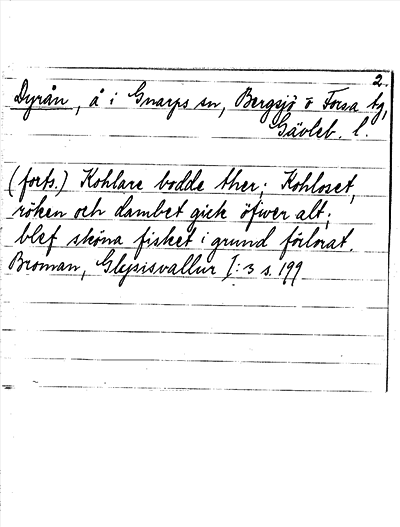 2.
Dyrån, å i Gnarps sn, Bergsjö o Forsa tg,
Gävleb. l.
(forts.) Kohlare bodde ther; Kohloset,
röken och dambet gick öfwer alt;
blef sköna fisket i grund förlorat.
Broman, Glysisvallur I:3 s. 199